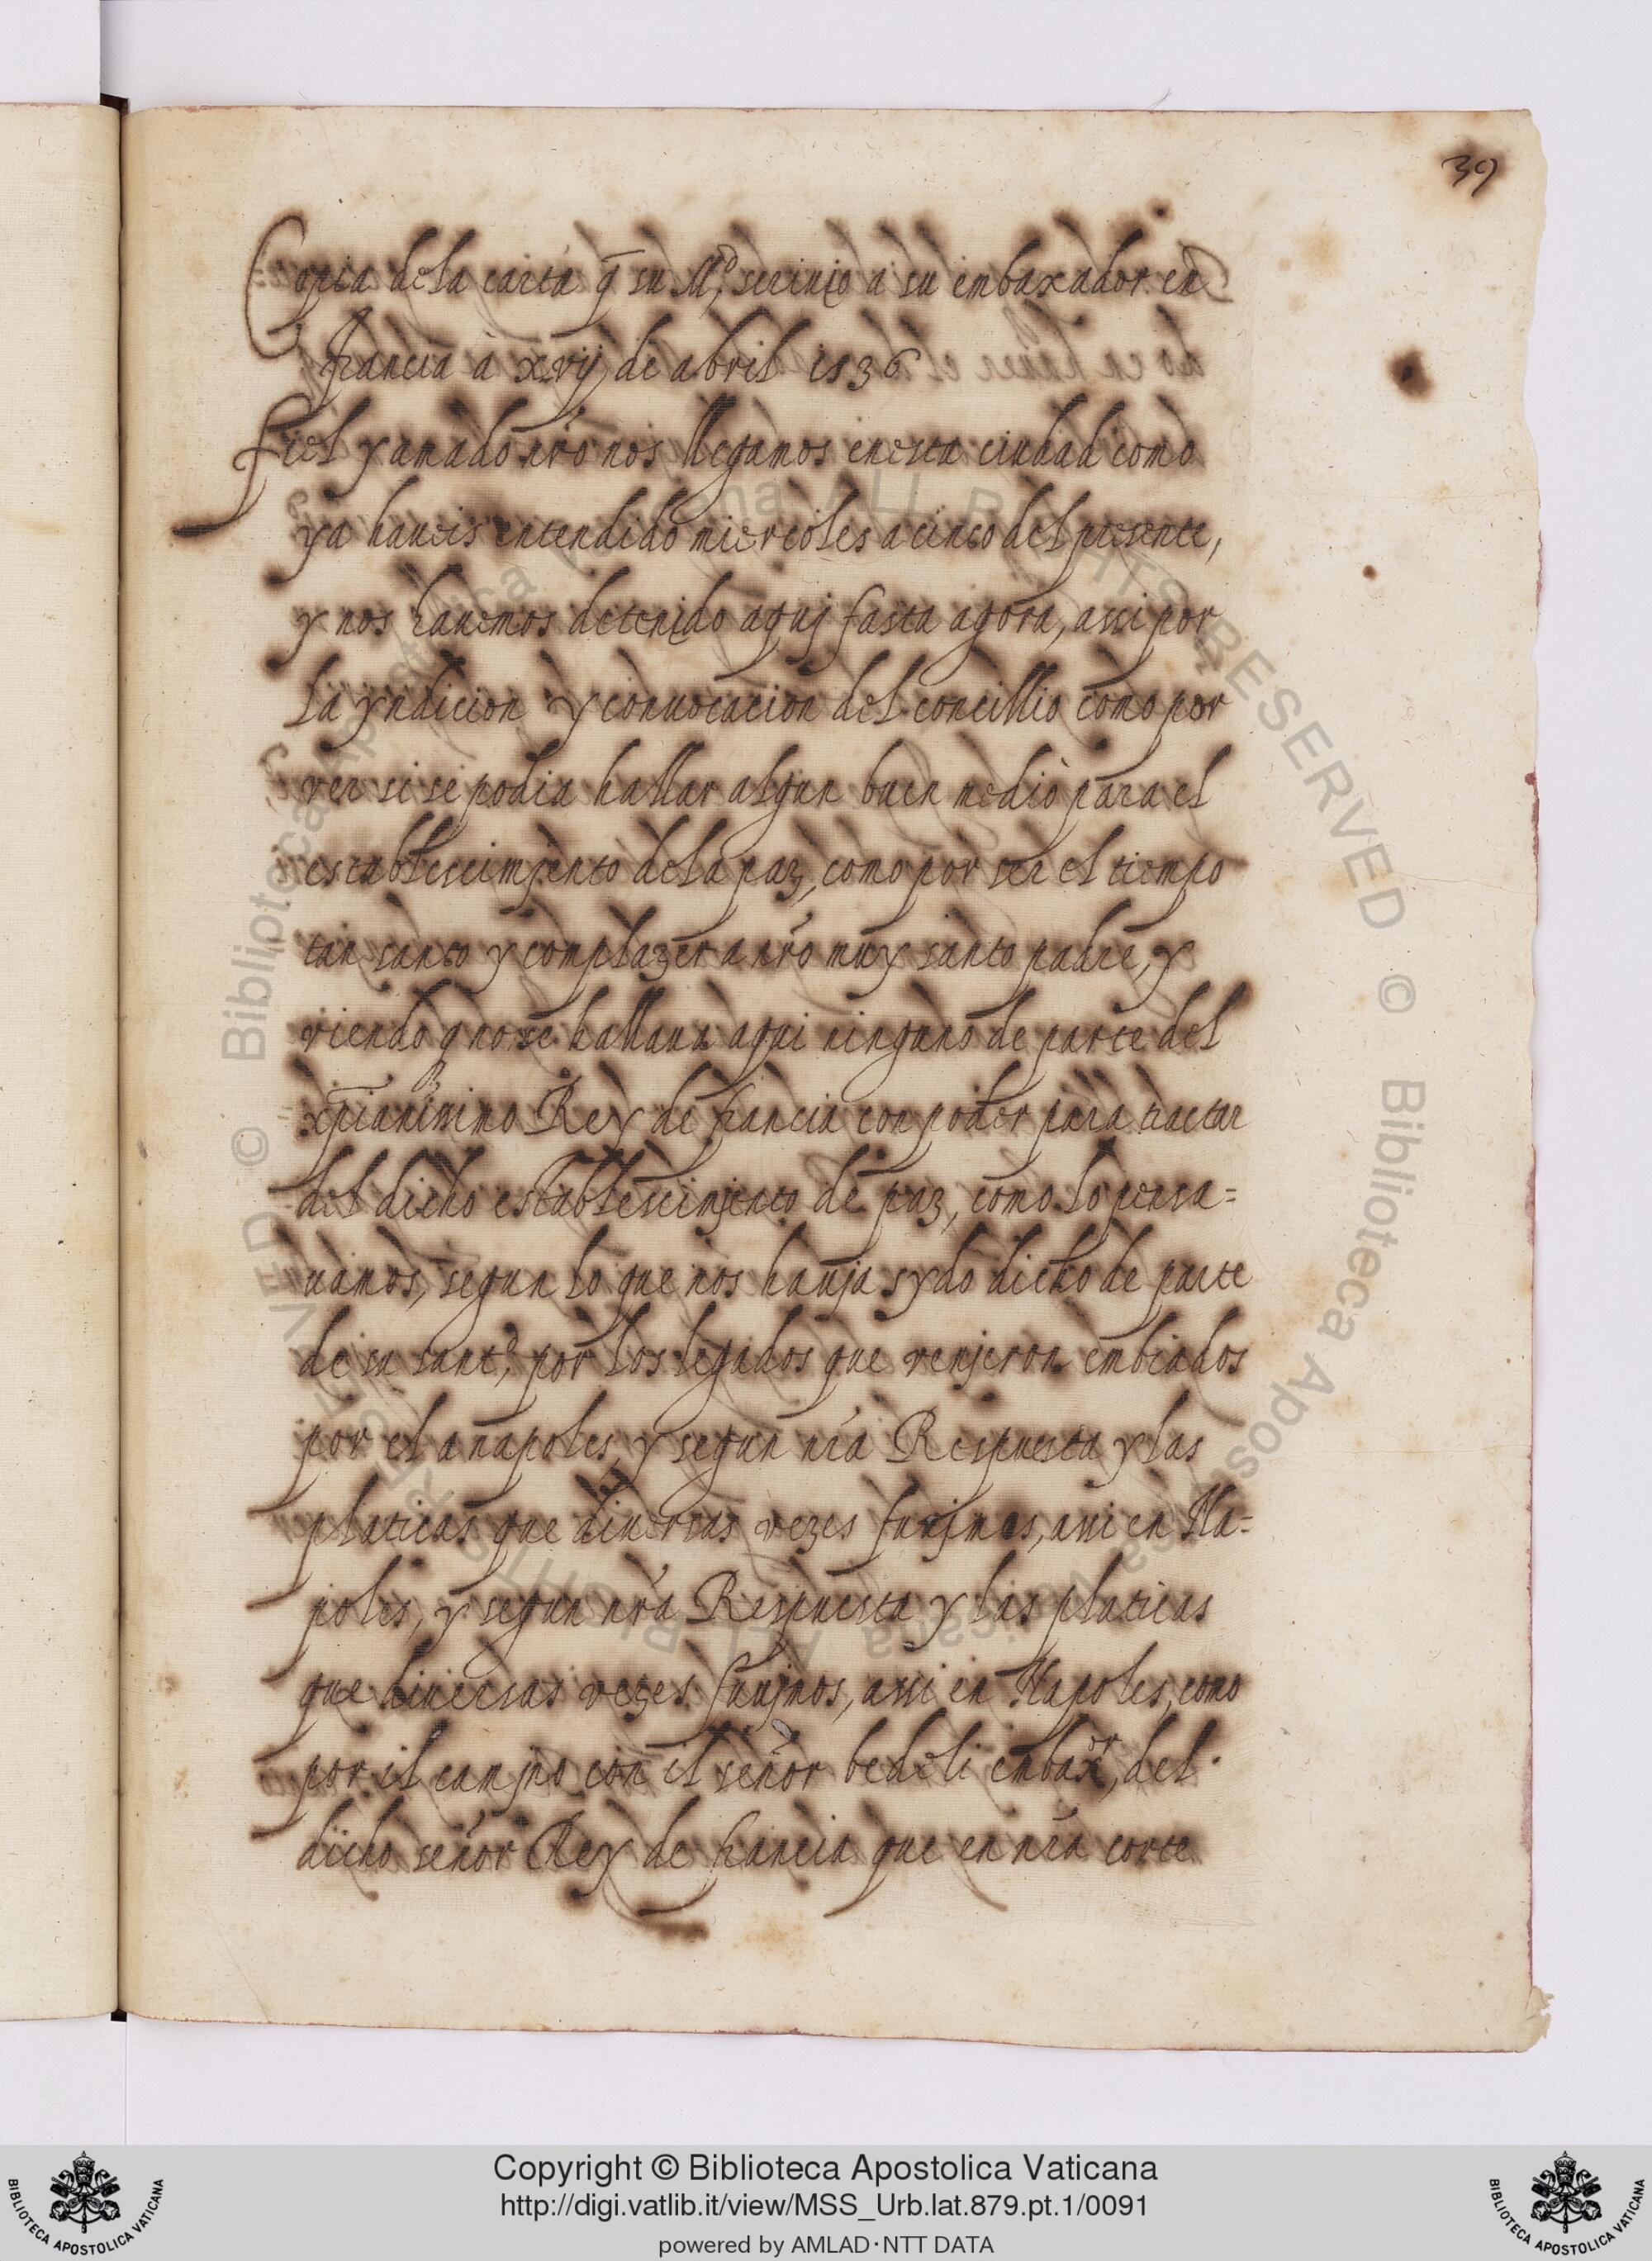 39
Copia de la carta q̄ su Mᵈ scriuio a su embaxador en
francia a xvij de abril 1536
fiel y amado nr̄o nos llegamos en esta ciudad como
ya haueis entendido miercoles a cinco del presente,
y nos hauemos detenido aquj fasta agora, assi por
la yndicion y conuocacion del concillio como por
ver si se podia hallar algun buen medio para el
establescimjento de la paz, como por ser el tiempo
tan santo y complazer a nr̄o muy santo padre, y
viendo q̄ no se hallaua aqui ninguno de parte del
xp̄ianissimo Rey de francia con poder para tractar
del dicho establescimjento de paz, como lo pensa=
uamos, segun lo que nos hauja sydo dicho de parte
de su santᵈ, por los legados que venjeron embiados
por el a napoles, y segun nr̄a Respuesta y las
platicas que diuersas vezes fuujmos, assi en Na=
poles, y segun nr̄a Respuesta y las platicas
que diuersas vezes fuujmos, assi en Napoles, como
por il camjno con il señor bedeli enbaxᵒʳ, del
dicho señor Rey de francia que en nr̄a corte
© Biblioteca Apostolica Vaticana ALL RIGHTS RESERVED © Biblioteca Apostolica Vaticana ALL RIGHTS RESERVED
Copyright © Biblioteca Apostolica Vaticana
http://digi.vatlib.it/view/MSS_Urb.lat.879.pt.1/0091
powered by AMLAD·NTT DATA
BIBLIOTECA APOSTOLICA VATICANA
BIBLIOTECA APOSTOLICA VATICANA